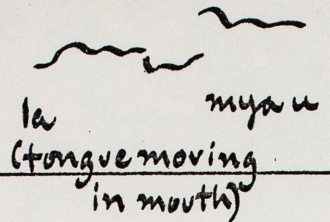 la myau
(tongue moving
in mouth)